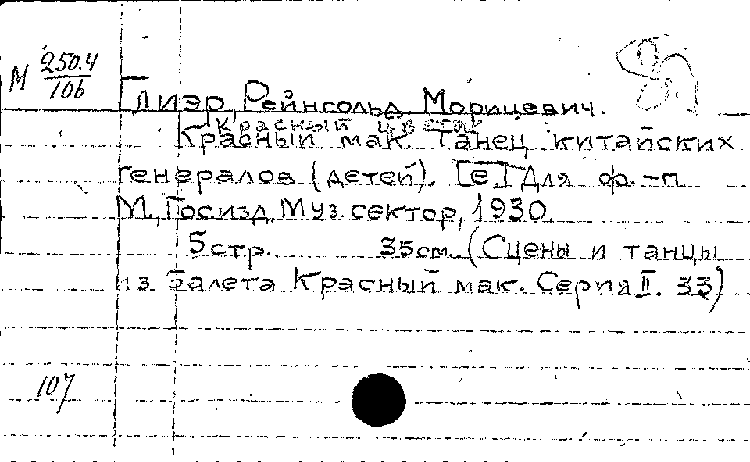 М 250.4
10б
Глиэр, Рейнгольд Морицевич.
Красный цветок
Красный мак. Танец китайских
генералов (детей). [e.] Для ф.-п
М., Госизд. Муз. сектор, 1930.
5 стр. 35 см. (Сцены и танцы
из балета Красный мак. Серия II. 33)
107